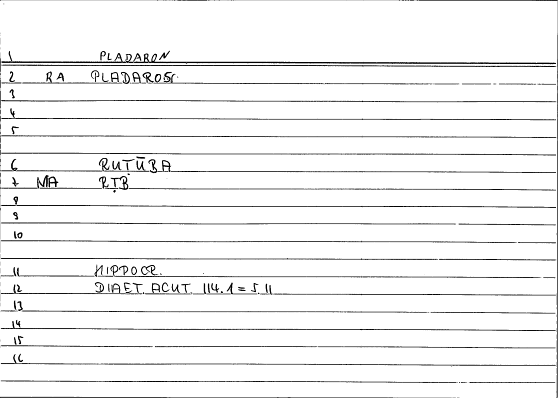 1 PLADARON
2 RA PLADAROS
3
4
5
6 RUṬŪBA
7 NA RṬB
8
9
10
11 HIPPOCR.
12 DIAET. ACUT. 114.1 = 5.11
13
14
15
16